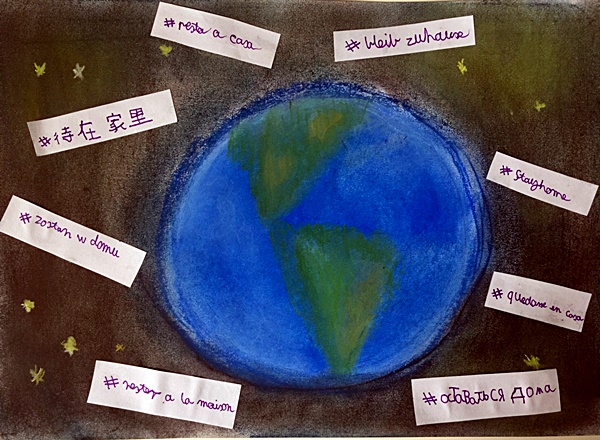 #resta a casa
#bleib zuhause
#待在家里
#stayhome
#zostan w domu
#quedarse en casa
#rester a la maison
#оставаться дома